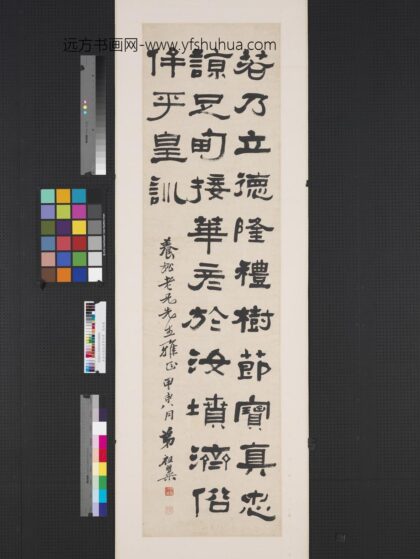 远方书画网-www.yfshuhua.com
若乃立德隆禮樹節寶真忠
諒足接華於汝墳濟俗
侔乎皇訓
養老兄先生雅正甲寅八月弟祖